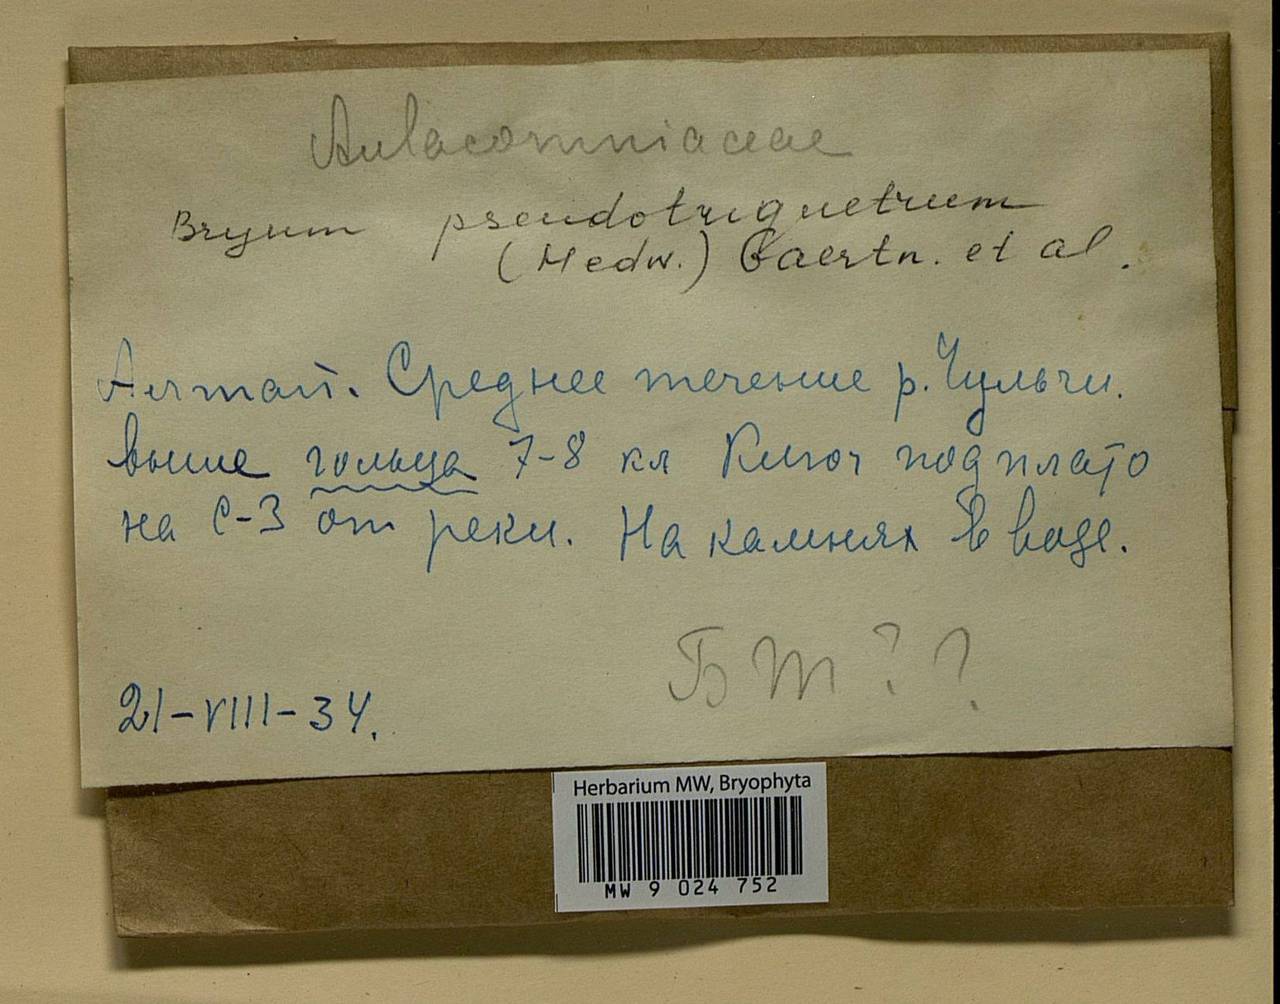 Aulacomniaceae
Bryum pseudotriquetrum
(Hedw.) Gaertn. et al.
Алтай. Среднее течение р. Чульчи.
выше гольца 7-8 кл Ключ под плато
на С-З от реки. На камнях в воде.
Б М ? ?
21-VIII-34.
Herbarium MW, Bryophyta
MW 9 024 752